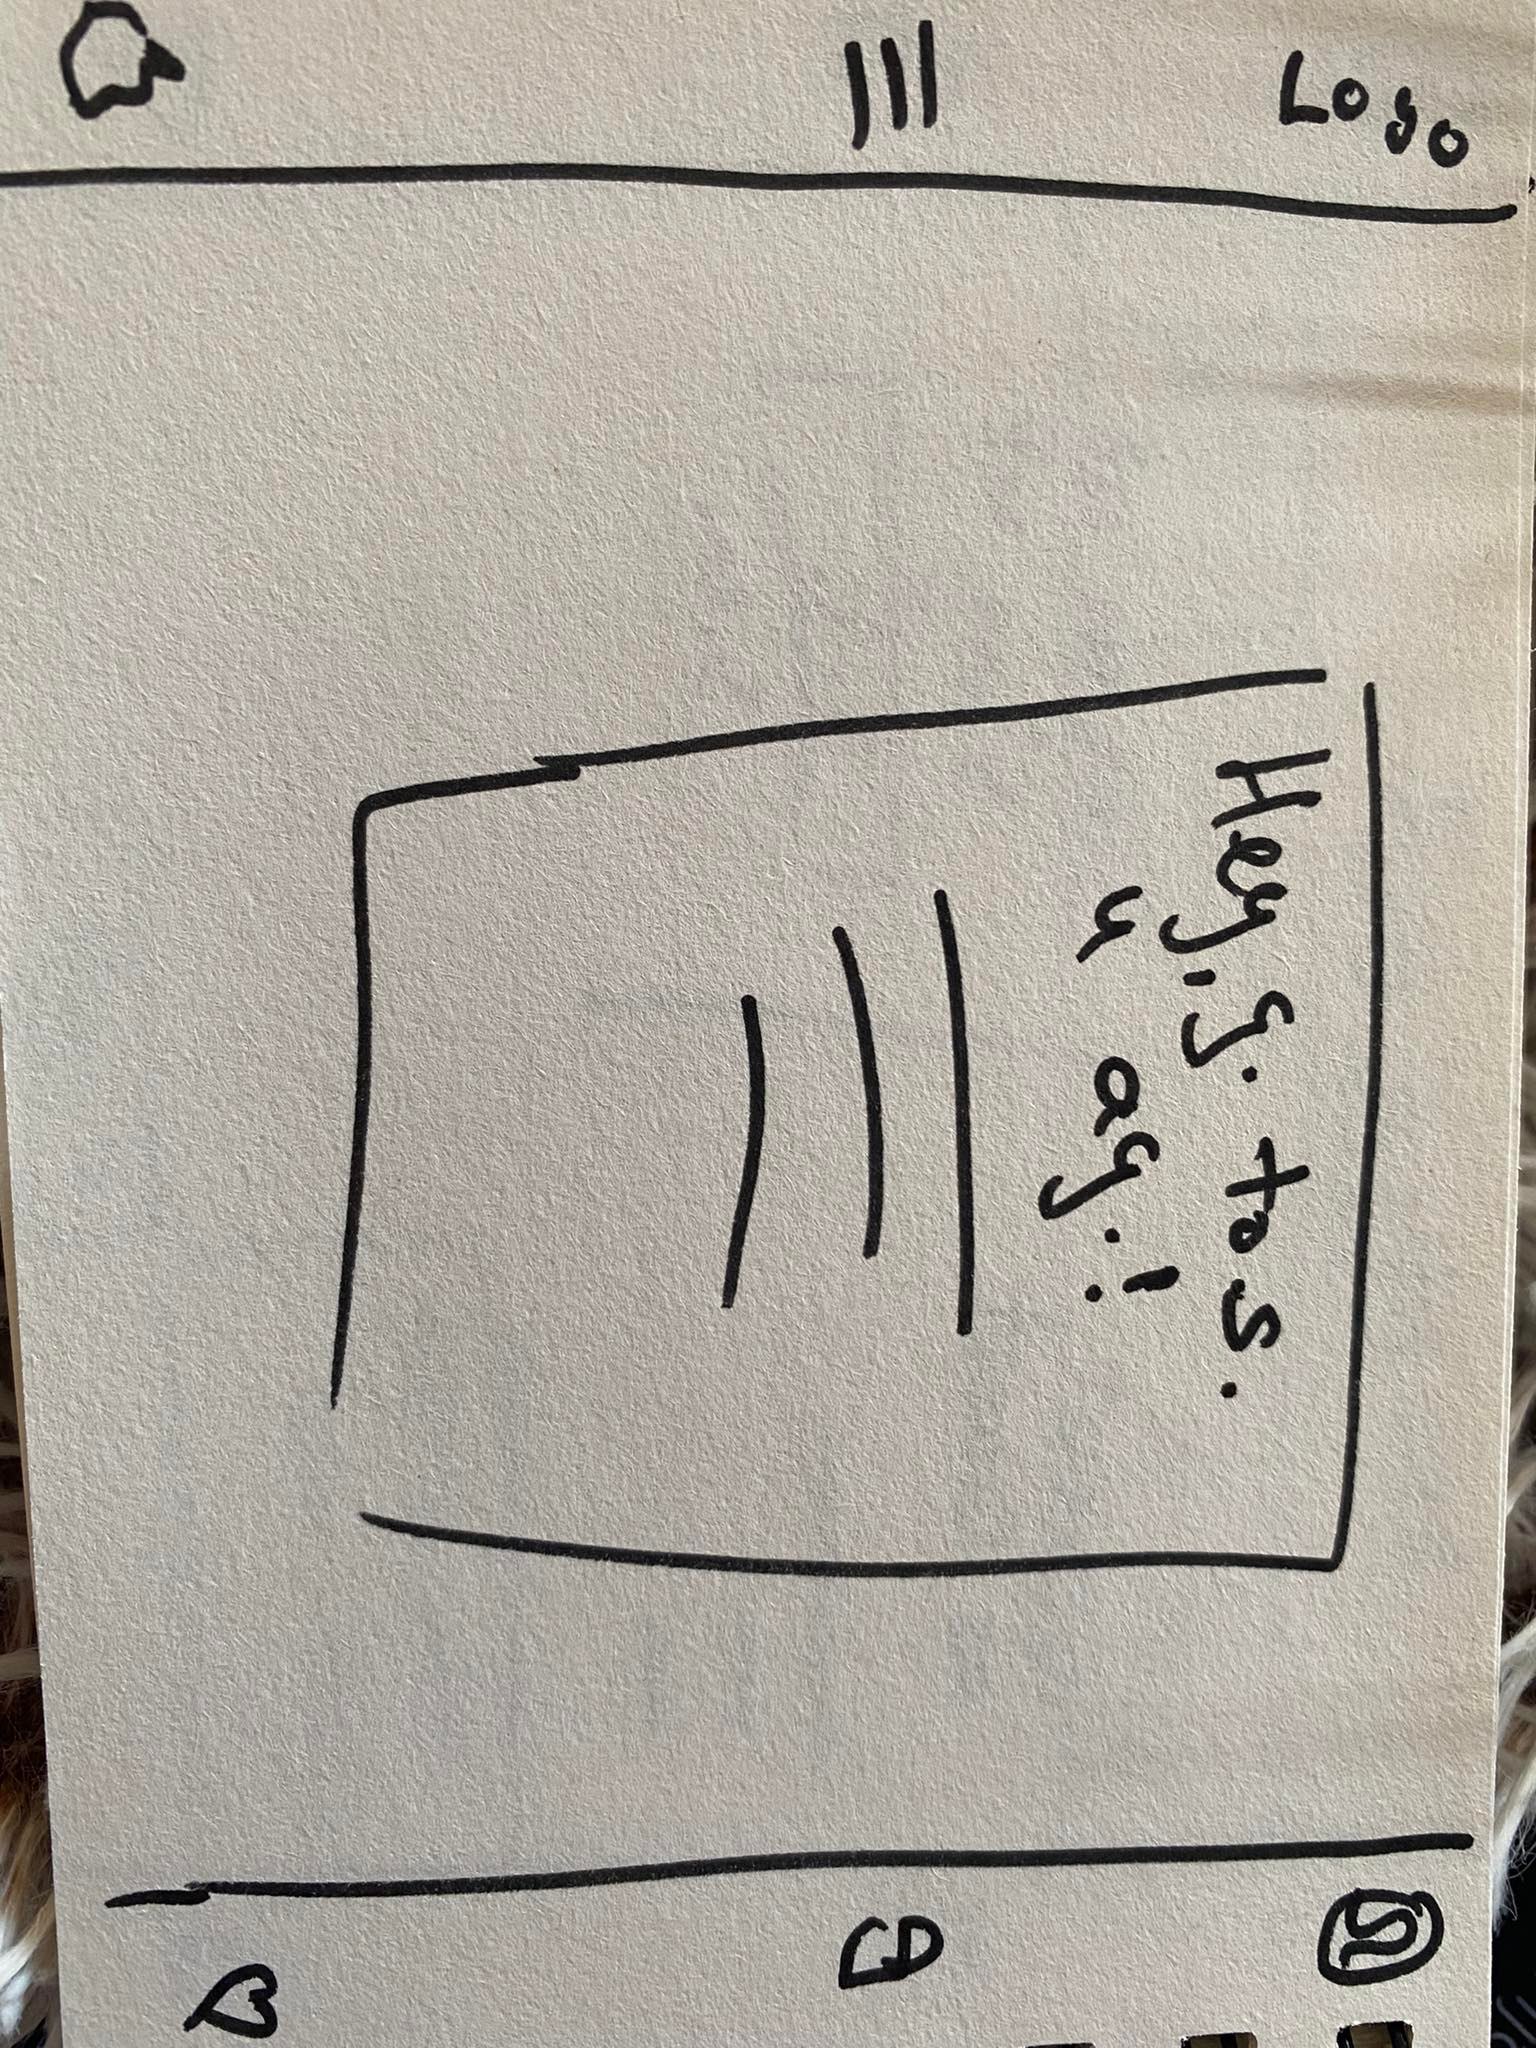 Logo
Hey, g. to s.
u ag.!